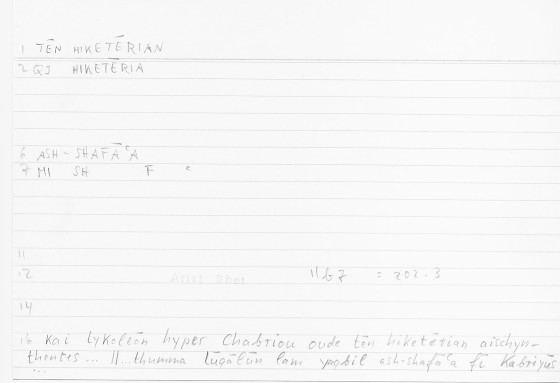 1 TĒN HIKETĒRIAN
2 QJ HIKETĒRIA
6 ASH-SHAFĀʿA
7 MI SH F ʿ
11
12 Arist Rhet = 202.3
14
16 Kai Lykoleōn hyper Chabriou oude tēn hiketērian aischyn-
thentes ... || ... thumma Lūqālūn lam yaqbil ash-shafāʿa fī Kabriyūs
...